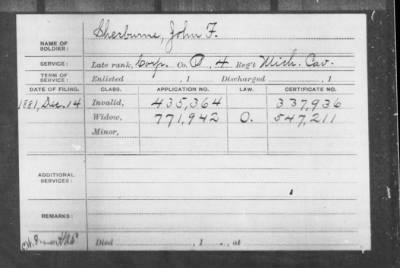 NAME OF SOLDIER: Sherburne, John F.
SERVICE: Late rank, Corp. Co. , 4 Reg't Mich. Cav.
TERM OF SERVICE: Enlisted , 1 Discharged , 1
DATE OF FILING. CLASS. APPLICATION NO. LAW. CERTIFICATE NO.
1881, Dec. 14 Invalid, 435,364 337,936
Widow, 771,942 O. 547,211
Minor,
ADDITIONAL SERVICES:
REMARKS:
Died , 1 , at